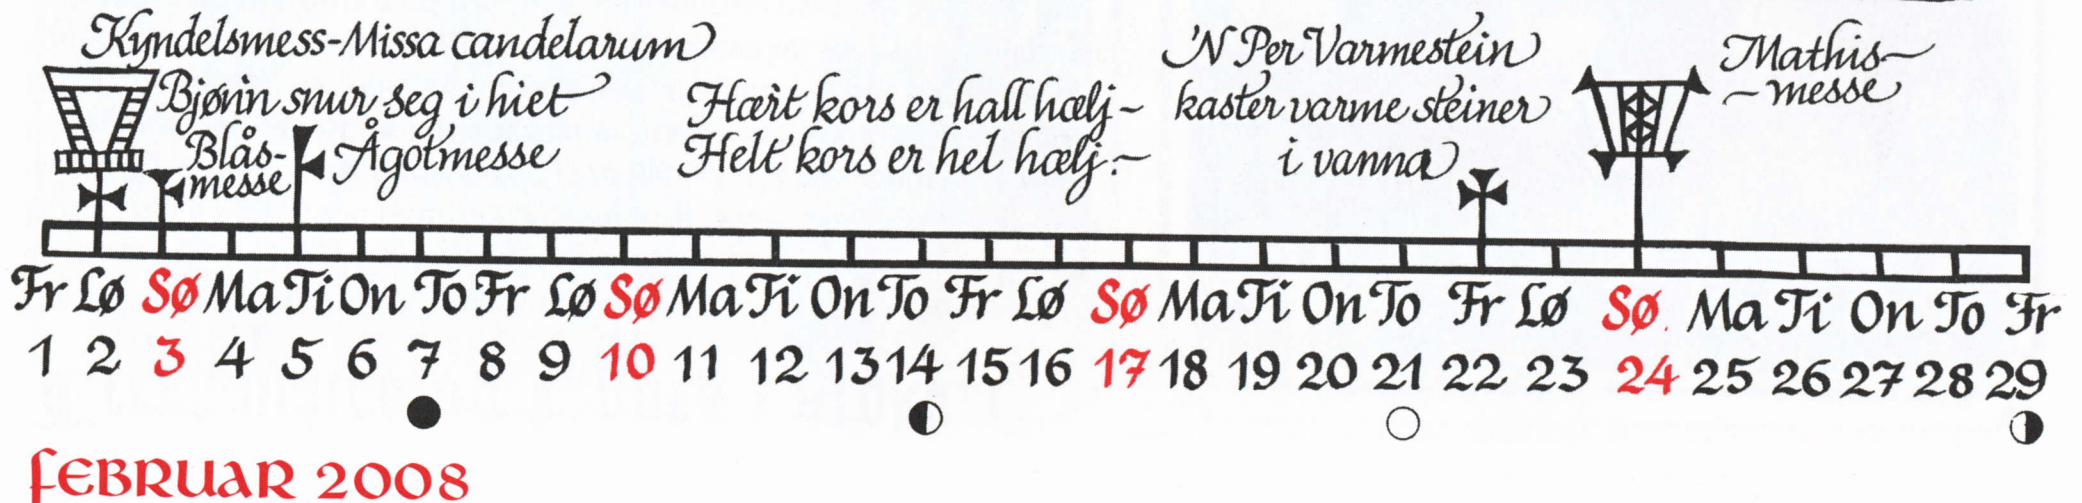 Kyndelsmess-Missa candelarum
Bjørin snur seg i hiet
Blås-
messe
Ågotmesse
Hært kors er hall hælj-
Helt kors er hel hælj.-
'N Per Varmestein
kaster varme steiner
i vanna
Mathis-
-messe
Fr Lø Sø Ma Ti On To Fr Lø Sø Ma Ti On To Fr Lø Sø Ma Ti On To Fr Lø Sø. Ma Ti On To Fr
1 2 3 4 5 6 7 8 9 10 11 12 13 14 15 16 17 18 19 20 21 22 23 24 25 26 27 28 29
FEBRUAR 2008